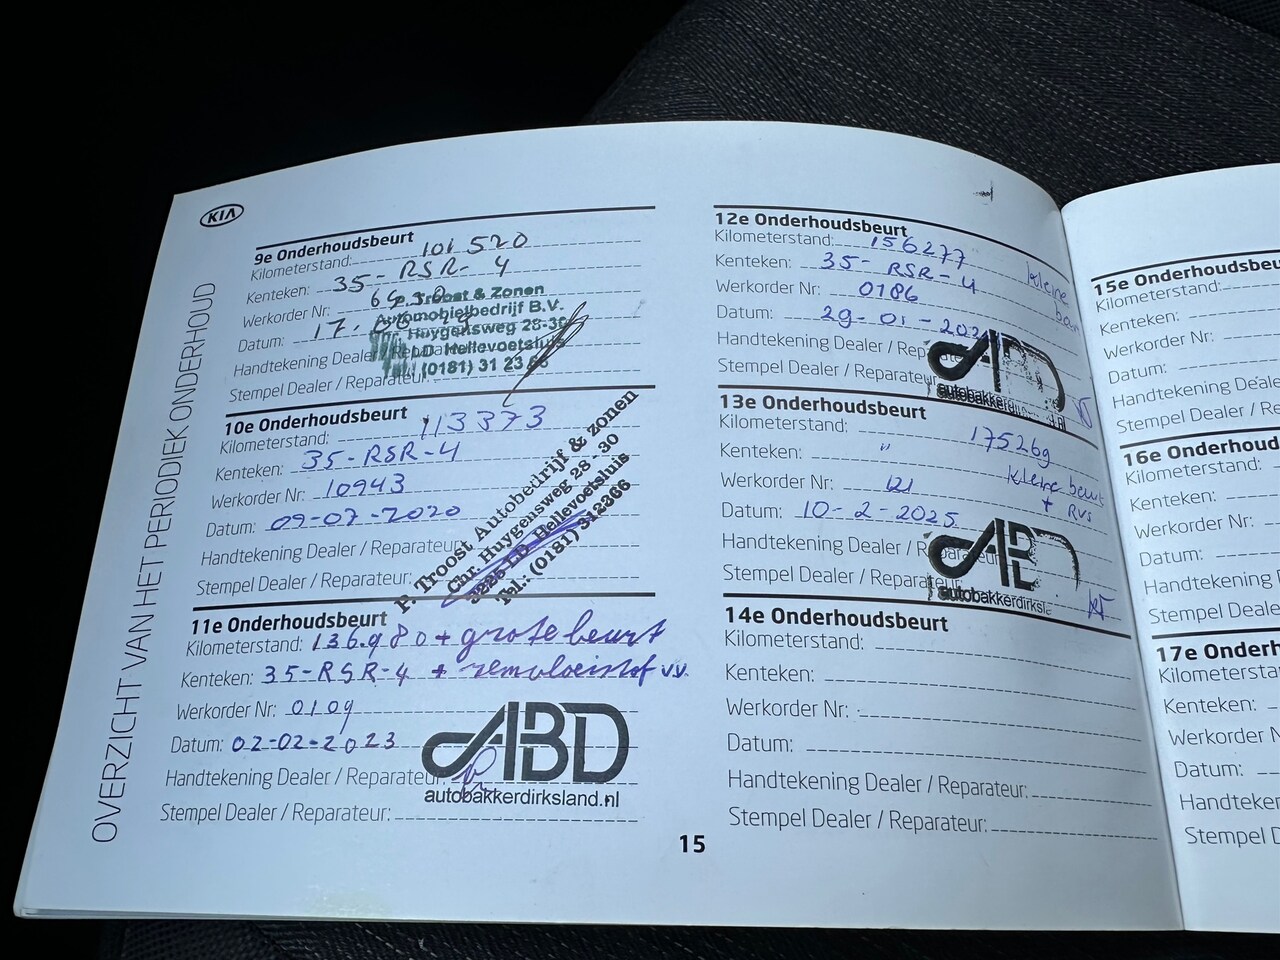 KIA
OVERZICHT VAN HET PERIODIEK ONDERHOUD
9e Onderhoudsbeurt
Kilometerstand: 101520
Kenteken: 35-RSR-4
Werkorder Nr:
Datum: 17-
Handtekening Dealer / Reparateur:
Stempel Dealer / Reparateur:
P. Troost & Zonen
Automobielbedrijf B.V.
Chr. Huygensweg 28-30
LD Hellevoetsluis
Tel. (0181) 31 23 66
10e Onderhoudsbeurt
Kilometerstand: 113373
Kenteken: 35-RSR-4
Werkorder Nr: 10943
Datum: 09-07-2020
Handtekening Dealer / Reparateur:
Stempel Dealer / Reparateur:
P. Troost Autobedrijf & zonen
Chr. Huygensweg 28 - 30
3225 LD Hellevoetsluis
Tel.: (0181) 312366
11e Onderhoudsbeurt
Kilometerstand: 136.980 + grote beurt
Kenteken: 35-RSR-4 + remvloeistof vv.
Werkorder Nr: 0109
Datum: 02-02-2023
Handtekening Dealer / Reparateur:
Stempel Dealer / Reparateur:
ABD
autobakkerdirksland.nl
12e Onderhoudsbeurt
Kilometerstand: 156277
Kenteken: 35-RSR-4 kleine beurt
Werkorder Nr: 0186
Datum: 29-01-202
Handtekening Dealer / Reparateur:
Stempel Dealer / Reparateur:
ABD
autobakkerdirksland.nl
13e Onderhoudsbeurt
Kilometerstand: 175269
Kenteken: " kleine beurt
Werkorder Nr: 121 + RVS
Datum: 10-2-2025
Handtekening Dealer / Reparateur:
Stempel Dealer / Reparateur:
ABD
autobakkerdirksla
14e Onderhoudsbeurt
Kilometerstand:
Kenteken:
Werkorder Nr:
Datum:
Handtekening Dealer / Reparateur:
Stempel Dealer / Reparateur:
15
15e Onderhoudsbeu
Kilometerstand:
Kenteken:
Werkorder Nr:
Datum:
Handtekening Deale
Stempel Dealer / R
16e Onderhoud
Kilometerstand:
Kenteken:
Werkorder Nr:
Datum:
Handtekening D
Stempel Deale
17e Onderh
Kilometersta
Kenteken:
Werkorder N
Datum:
Handteker
Stempel D